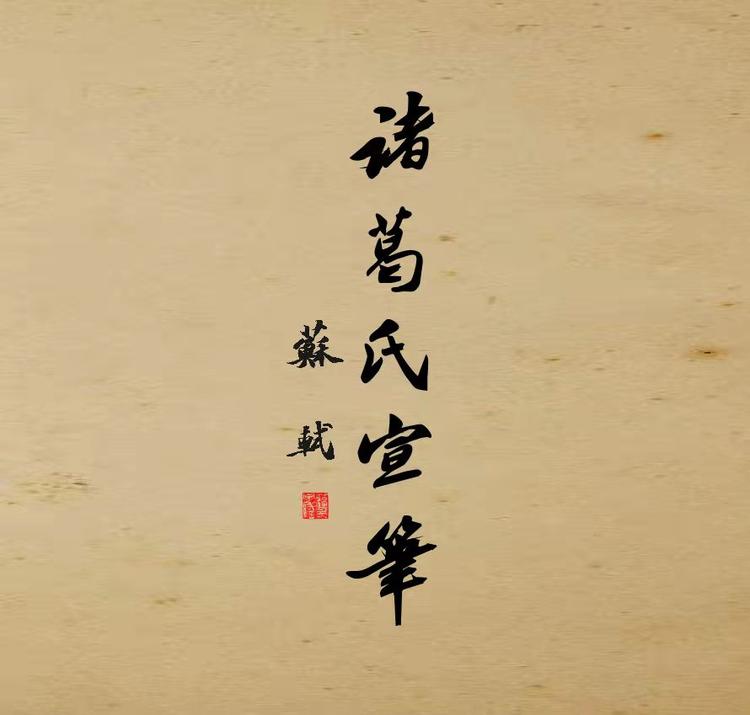 諸葛氏宣筆
蘇軾